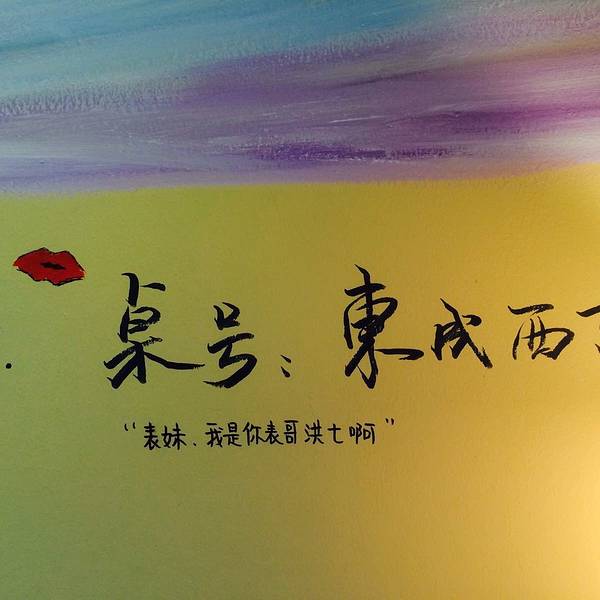 桌号：東成西
“表妹、我是你表哥洪七啊”